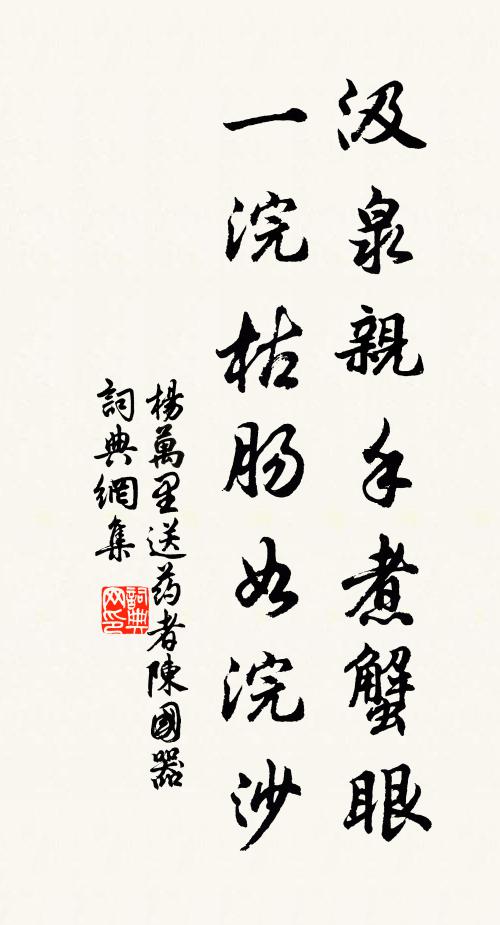 汲泉親手煮蟹眼
一浣枯肠如浣沙
楊萬里送药者陳國器
詞典網集
詞典网印